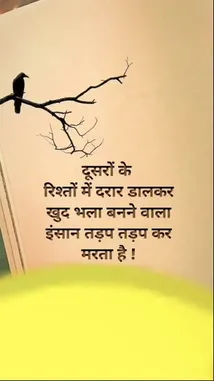 दूसरों के
रिश्तों में दरार डालकर
खुद भला बनने वाला
इंसान तड़प तड़प कर
मरता है !